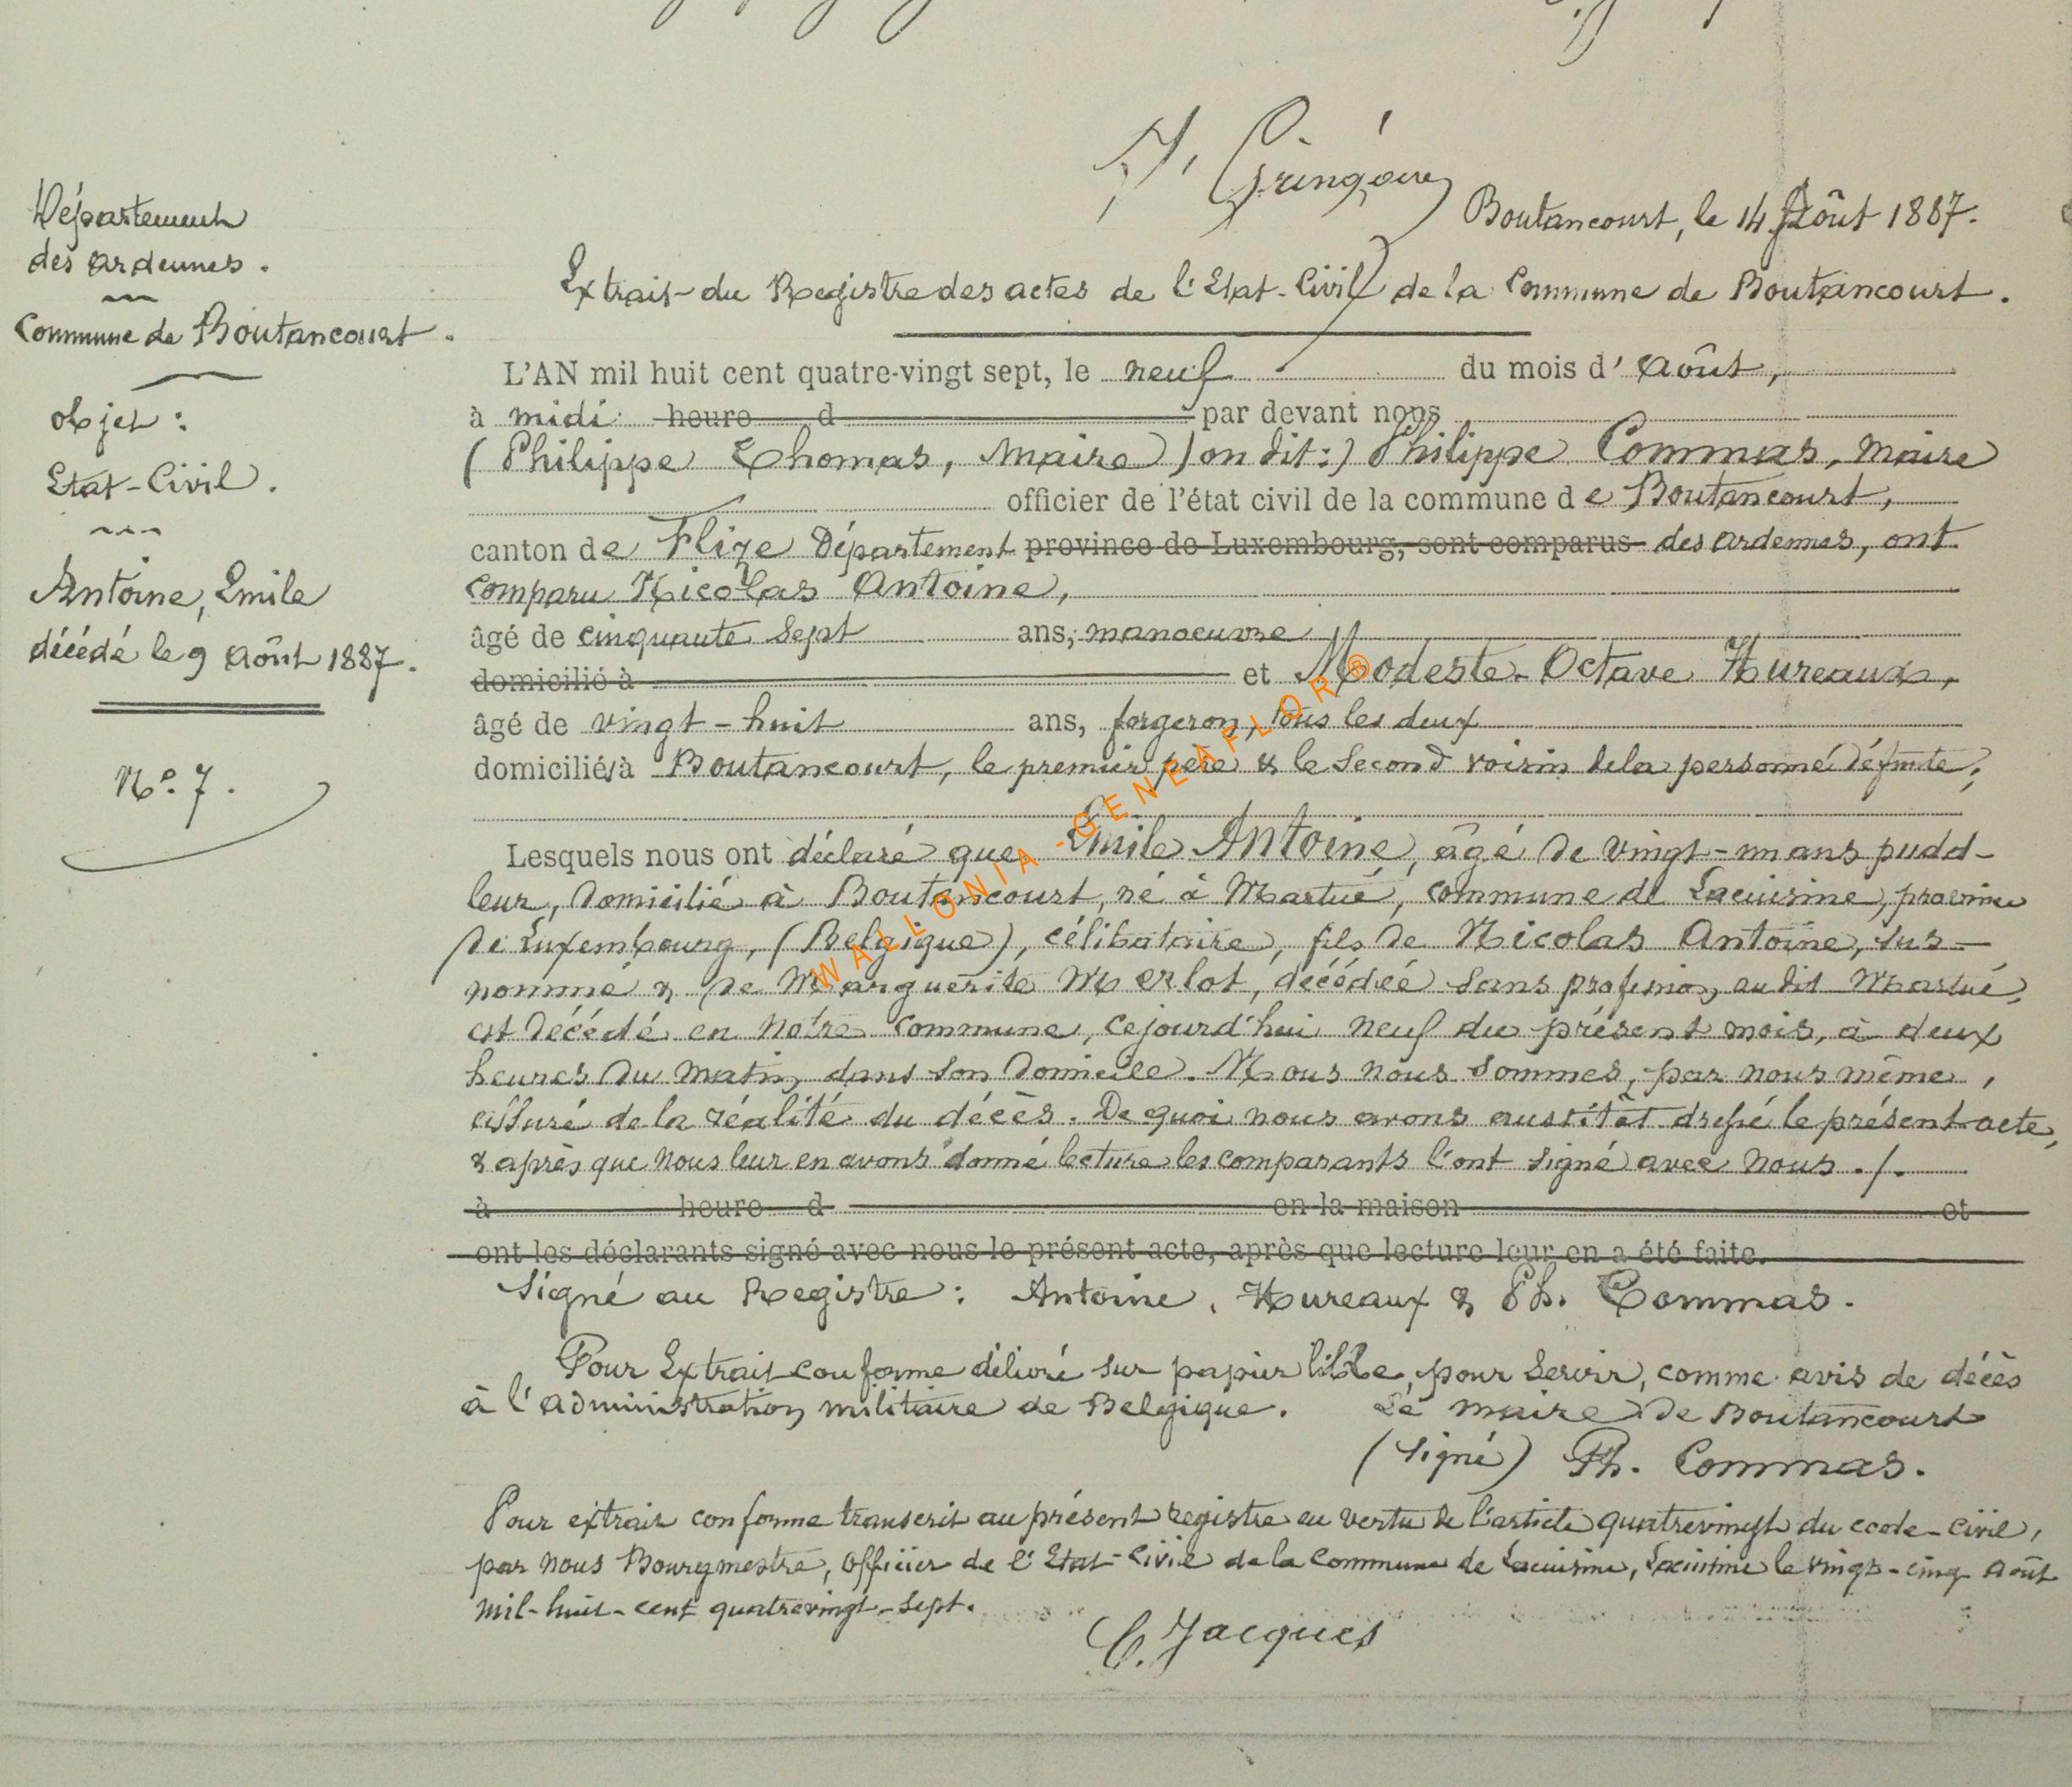 J. Gringoire
Département
des Ardennes.
Commune de Boutancourt.
Objet :
Etat-Civil.
Antoine, Emile
décédé le 9 Août 1887.
N.° 7.
Boutancourt, le 14 Août 1887.
Extrait du Registre des actes de l'Etat-Civil de la Commune de Boutancourt.
L'AN mil huit cent quatre-vingt sept, le neuf du mois d' Août,
à midi heure d par devant nous
(Philippe Thomas, Maire) (on dit:) Philippe Commas, Maire
officier de l'état civil de la commune de Boutancourt,
canton de Flize Département province de Luxembourg, sont comparus des Ardennes, ont
comparu Nicolas Antoine,
âgé de cinquante sept ans, manoeuvre
domicilié à et Modeste-Octave Hureaux,
âgé de vingt-huit ans, forgeron, tous les deux
domiciliés à Boutancourt, le premier père & le second voisin de la personne défunte,
Lesquels nous ont déclaré que Emile Antoine, âgé de vingt-un ans, pudd-
leur, domicilié à Boutancourt, né à Martué, commune de Lacuisine, province
de Luxembourg, (Belgique), célibataire, fils de Nicolas Antoine, sus-
nommé & de Marguerite Merlot, décédée sans profession, au dit Martué,
est décédé en notre commune, cejourd'hui neuf du présent mois, à deux
heures du matin, dans son domicile. Nous nous sommes, par nous même,
assuré de la réalité du décès. De quoi nous avons aussitôt dressé le présent acte,
& après que nous leur en avons donné lecture les comparants l'ont signé avec nous ./.
à heure d en la maison et
ont les déclarants signé avec nous le présent acte, après que lecture leur en a été faite.
Signé au Registre : Antoine, Hureaux & Ph. Commas.
Pour Extrait conforme délivré sur papier libre, pour servir, comme avis de décès
à l'administration militaire de Belgique. Le maire de Boutancourt
(signé) Ph. Commas.
Pour extrait conforme transcrit au présent registre en vertu de l'article quatrevingt du code-civil,
par nous Bourgmestre, officier de l'Etat-Civil de la commune de Lacuisine, Lacuisine le vingt-cinq Août
mil-huit-cent quatrevingt-sept.
C. Jacques
WALLONIA-GENEAFLOR®